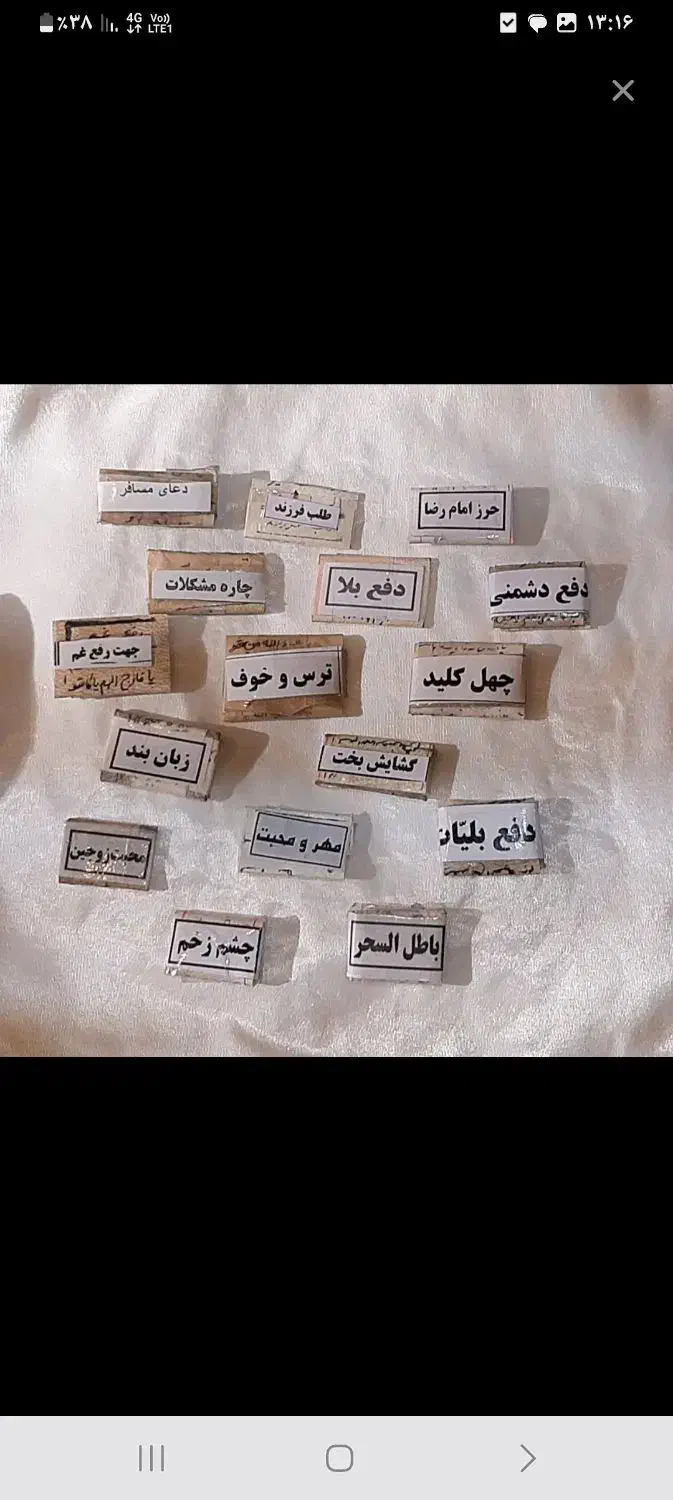 ٪۳۸ 4G Vo)) LTE1 ۱۳:۱۶
دعای مسافر
طلب فرزند
حرز امام رضا
چاره مشکلات
دفع بلا
دفع دشمنی
جهت رفع غم
ترس و خوف
چهل کلید
زبان بند
گشایش بخت
محبت زوجین
مهر و محبت
دفع بلیّات
چشم زخم
باطل السحر